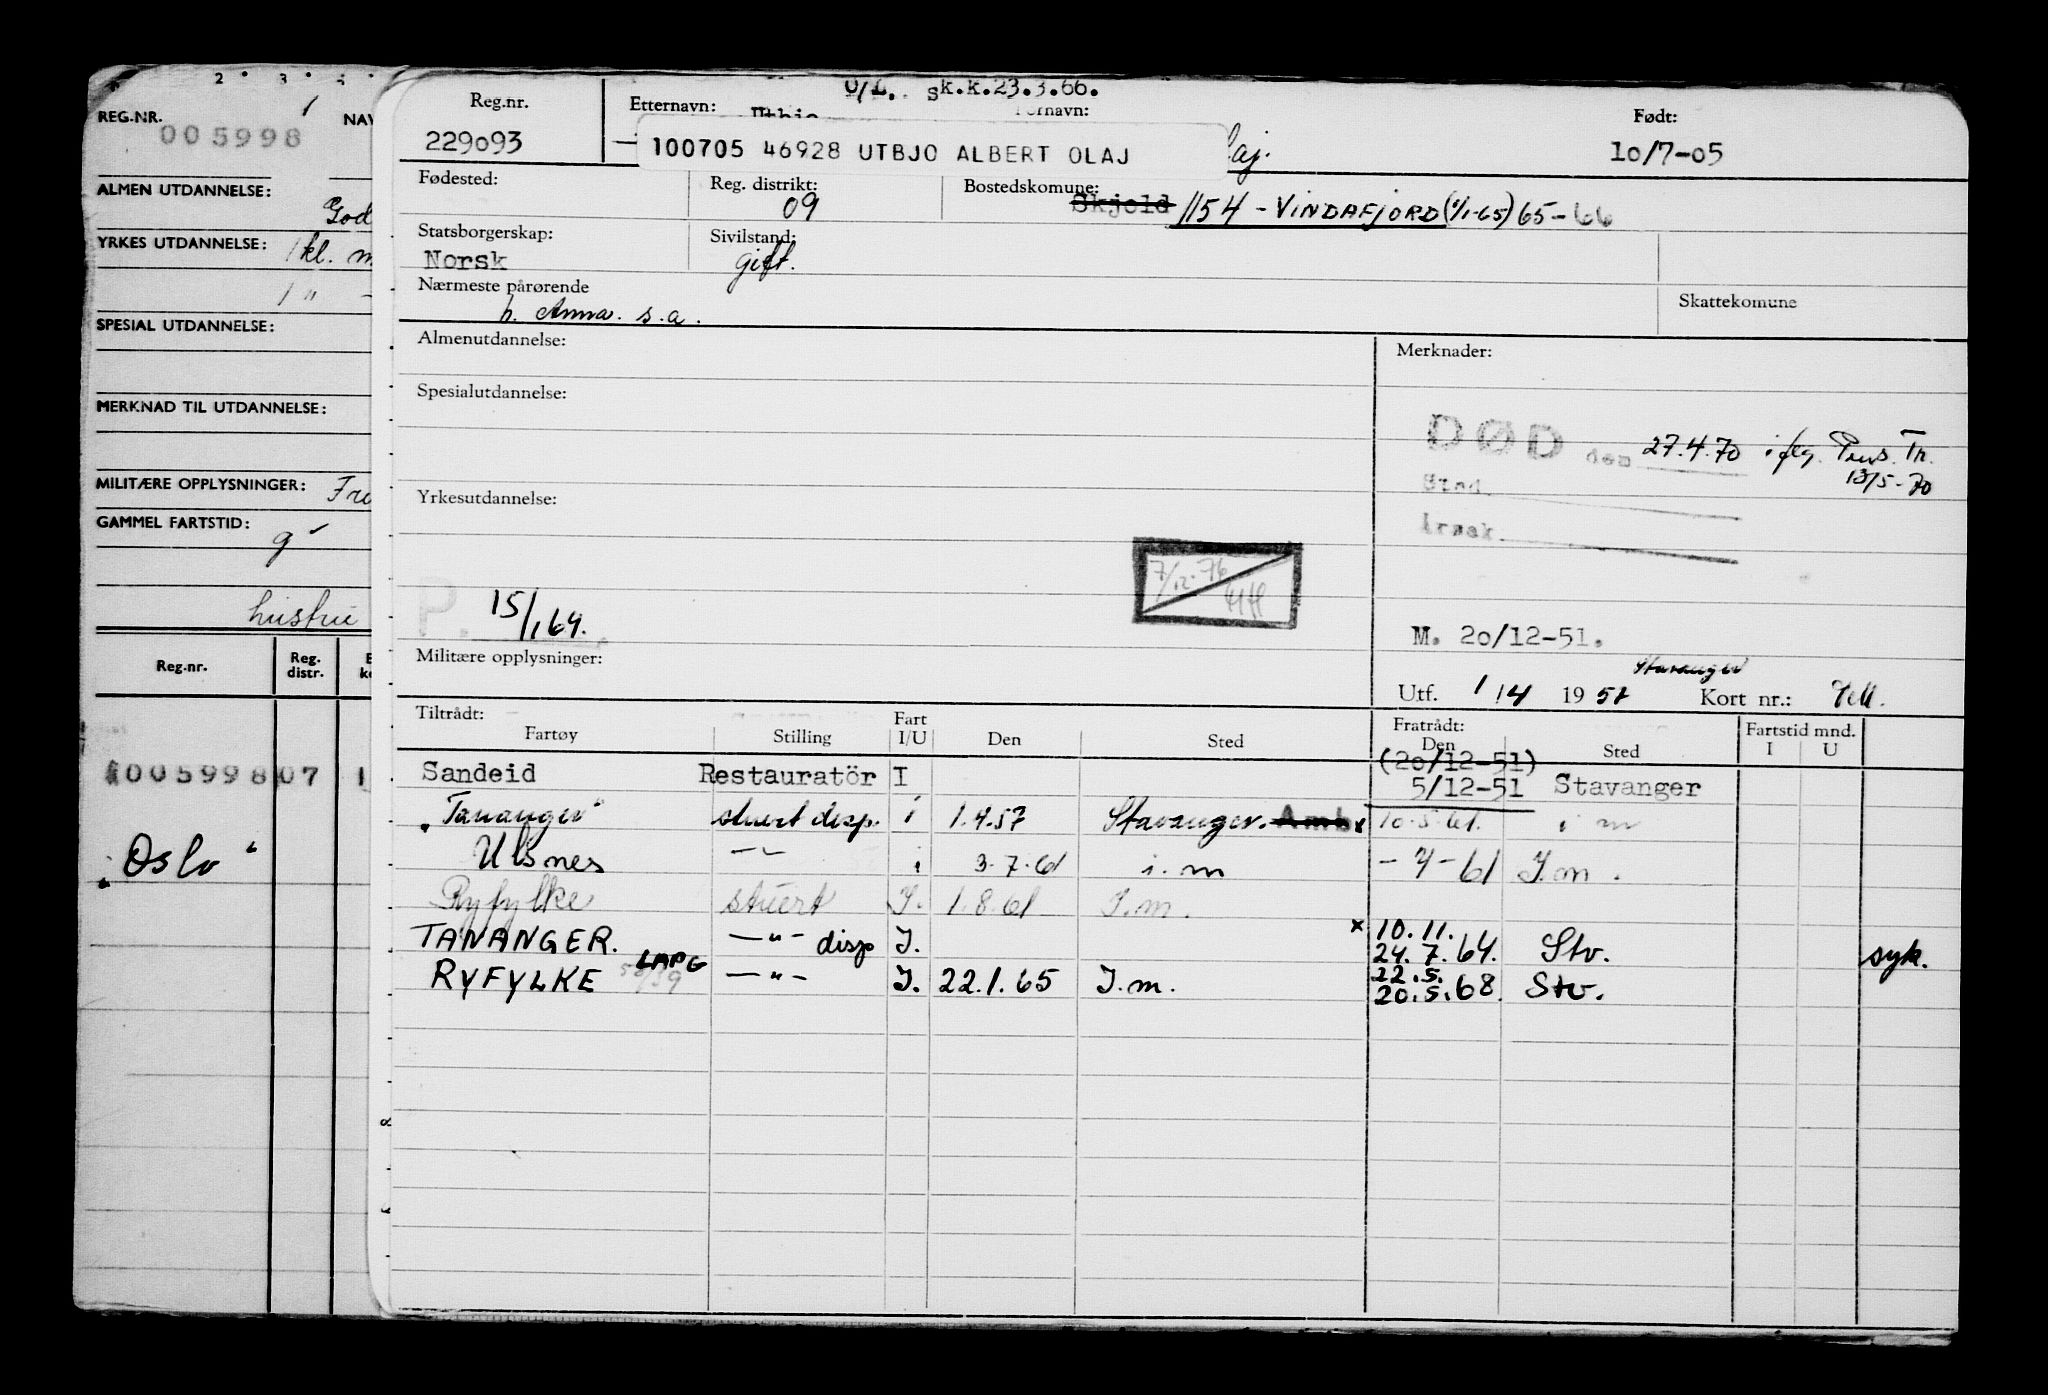 2 • 3 •
REG.NR. 005998 NAV
ALMEN UTDANNELSE: God
YRKES UTDANNELSE: 1 kl. m
1 " -
SPESIAL UTDANNELSE:
MERKNAD TIL UTDANNELSE:
MILITÆRE OPPLYSNINGER: Fre
GAMMEL FARTSTID:
hustru
Reg.nr. Reg. distr.
005998 07 1
"Oslo"
O/L. sk.k.23.3.66.
Reg.nr. Etternavn: Fornavn: Født:
229093 Utbjo 10/7-05
100705 46928 UTBJO ALBERT OLAJ
laj.
Fødested: Reg. distrikt: Bostedskomune:
09 Skjold 1154 - VINDAFJORD (1/1-65) 65-66
Statsborgerskap: Sivilstand:
Norsk gift.
Nærmeste pårørende Skattekomune
h. Anna. s.a.
Almenutdannelse: Merknader:
Spesialutdannelse:
DØD den 27.4.70 iflg. Tr.
13/5-70
Sted.
Årsak.
Yrkesutdannelse:
7/12-76
P. 15/1 64.
M. 20/12-51.
Militære opplysninger:
Stavanger
Utf. 1/4 1957 Kort nr.:
Tiltrådt: Fratrådt: Fartstid mnd.
Fartøy Stilling Fart I/U Den Sted Den Sted I U
(20/12-51)
Sandeid Restauratör I 5/12-51 Stavanger
"Tananger" stuert disp. i 1.4.57 Stavanger. Amb x 10.5.61. i m
Ulsnes -"- i 3.7.61 i.m -7-61 I.m.
Ryfylke stuert I. 1.8.61 I.m.
x 10.11.
TANANGER. -"- disp I. 24.7.64. Stv. syk.
LAPG 22.5.
RYFYLKE -"- I. 22.1.65 I.m. 20.5.68. Stv.